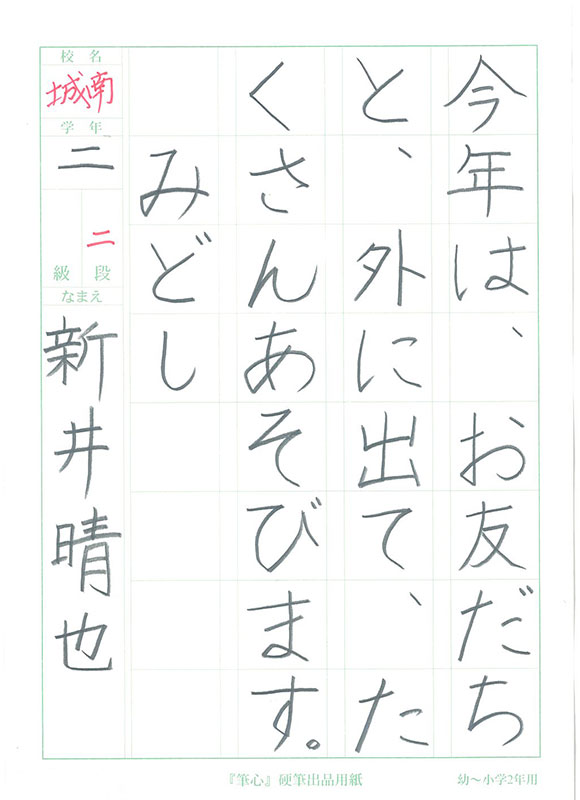 今年は、お友だち
と、外に出て、た
くさんあそびます。
みどし
校名
城南
学年
二
二
級段
なまえ
新井晴也
『筆心』硬筆出品用紙
幼～小学2年用